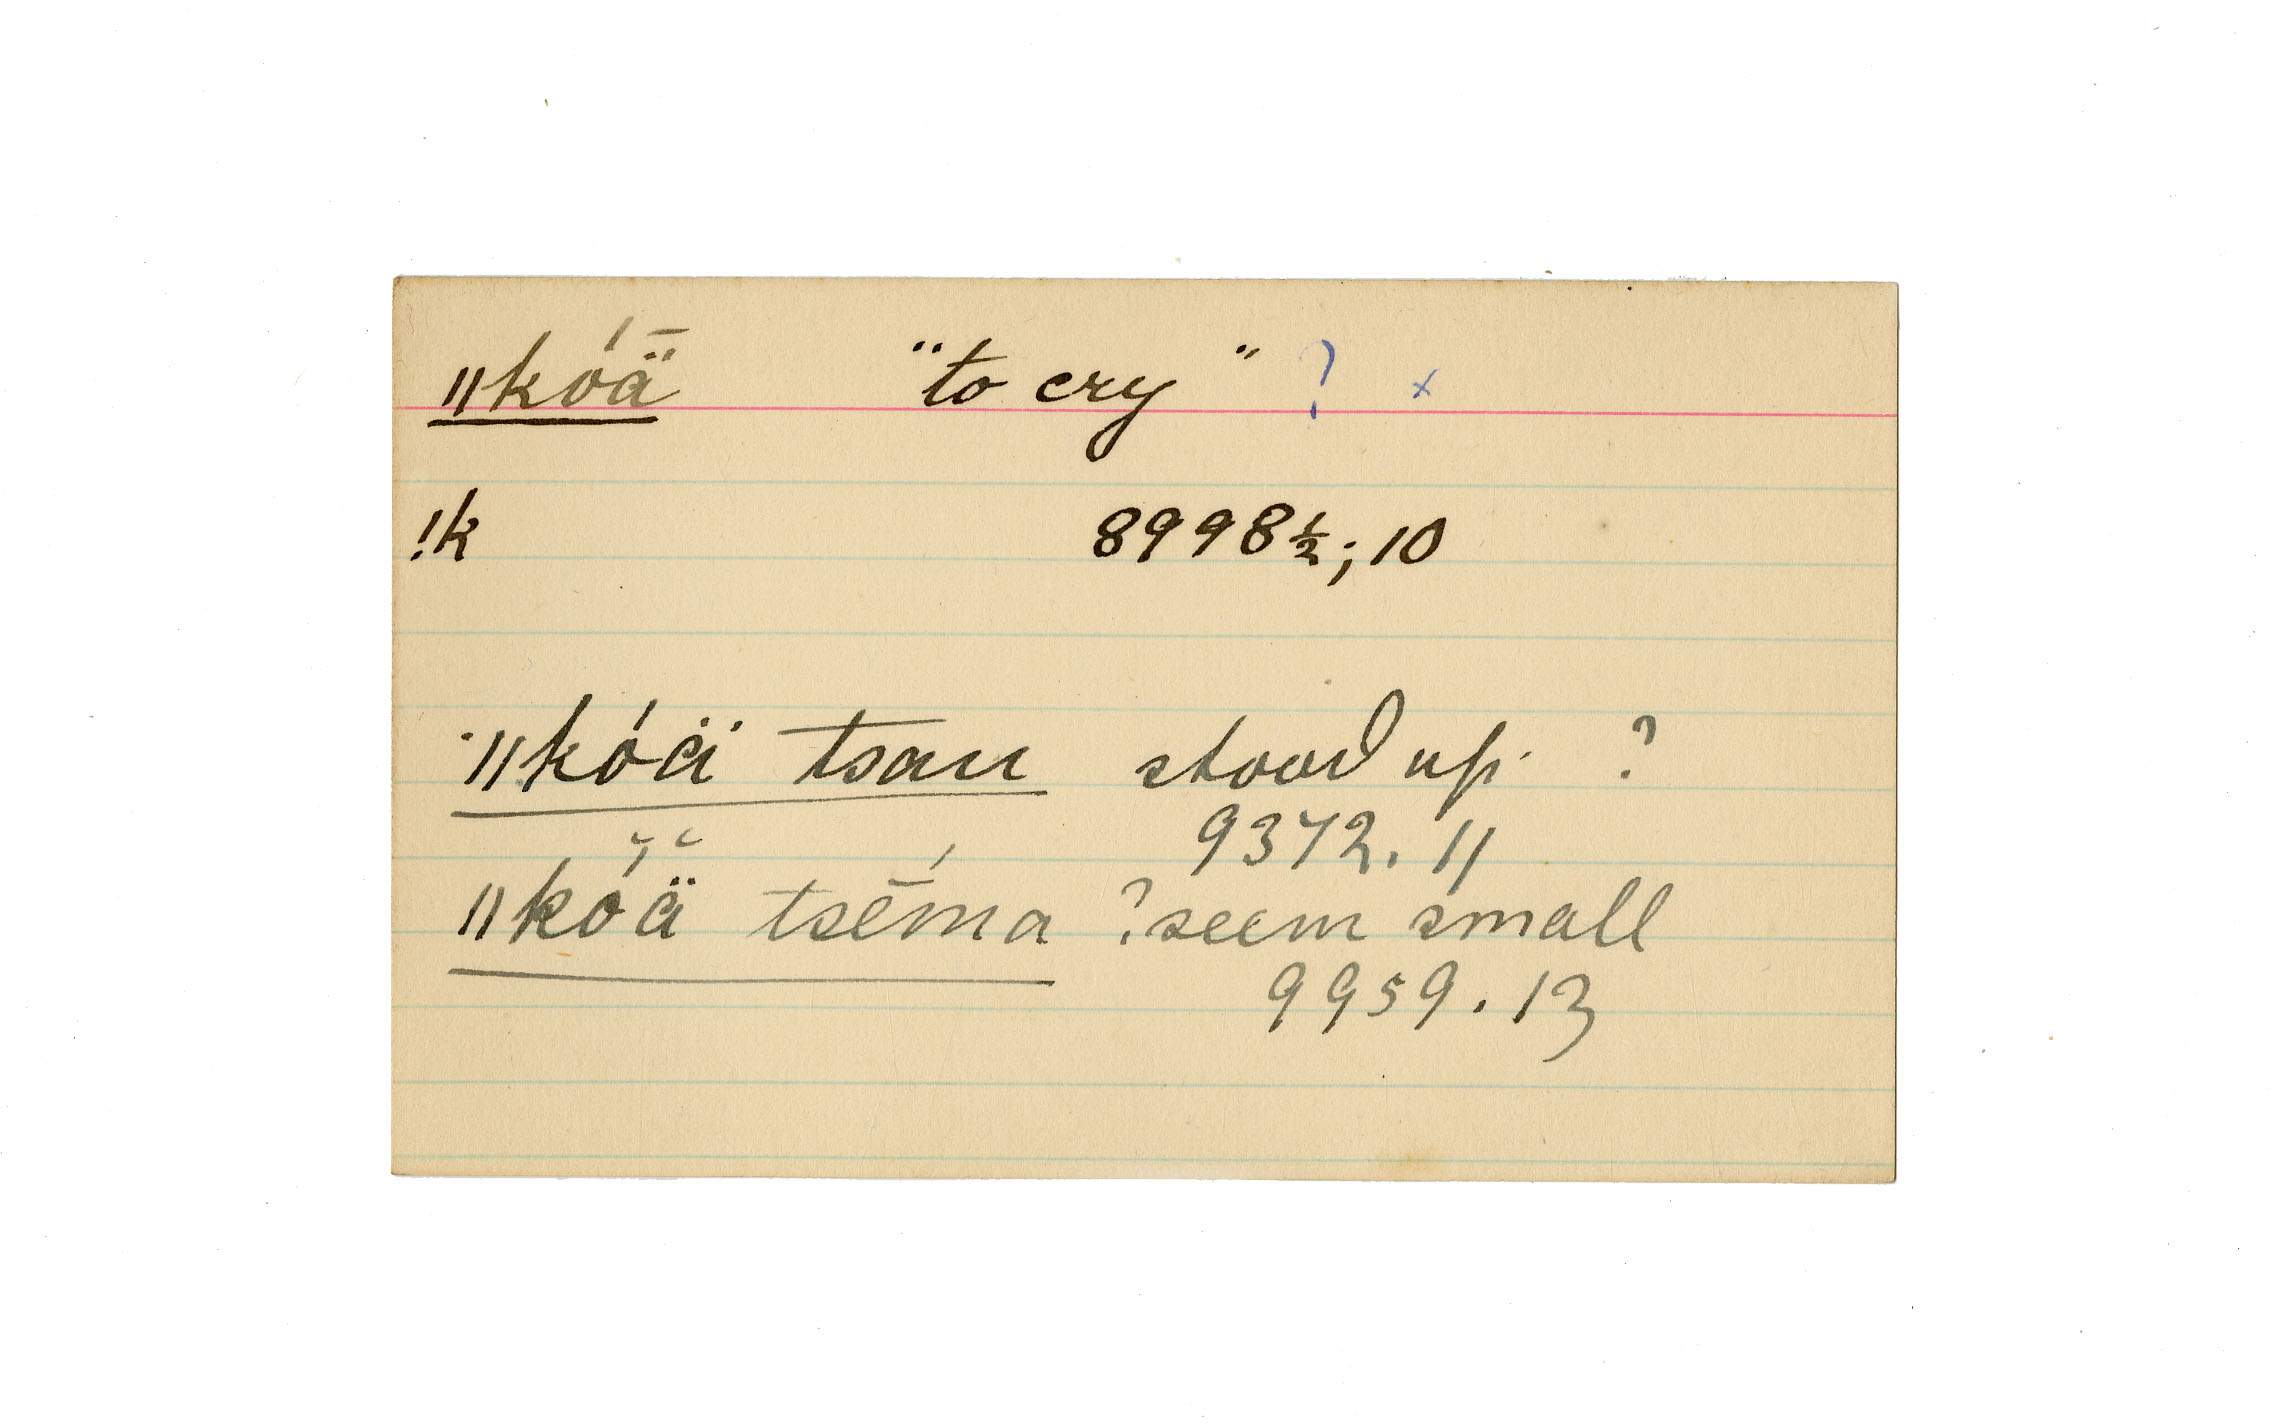 ǁkóǟ "to cry" ? x
!k 8998½; 10
ǁkóä tsau stood up ?
9372. 11
ǁkŏ́ä̆ tsḗma ? seem small
9959. 13